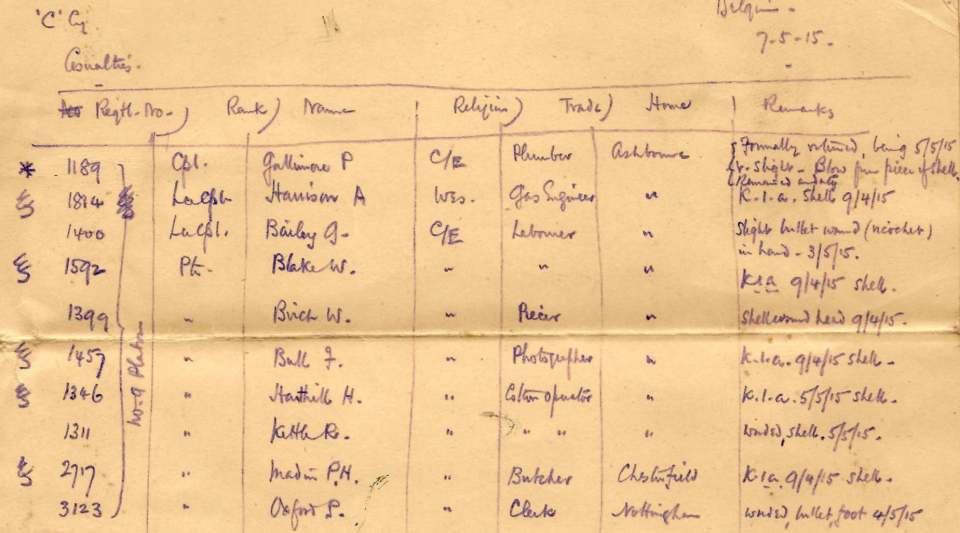 'C' Coy
Belgium -
7-5-15.
Casualties.
Regtl. No. Rank Name Religion Trade Home Remarks
1189 Cpl. Gallimore P C/E Plumber Ashbourne Formally returned, being 5/5/15
slight - Blow from piece of shell.
Remained on duty
1814 La Cpl. Harrison A Wes. Gas Engineer " K.I.a. Shell 9/4/15
1400 La Cpl. Bailey G. C/E Labourer " Slight bullet wound (ricochet)
in hand - 3/5/15.
1592 Pte. Blake W. " " " K.I.a 9/4/15 Shell.
1399 " Birch W. " Piecer " Shell wound head 9/4/15.
1457 " Bull F. " Photographer " K.I.a. 9/4/15 Shell.
1346 " Harthill H. " Cotton Operator " K.I.a. 5/5/15 Shell.
1311 " Kettle R. " " " " wounded, shell. 5/5/15.
2717 " Madin P.H. " Butcher Chesterfield K.I.a. 9/4/15 shell.
3123 " Oxford S. " Clerk Nottingham wounded, bullet, foot 4/5/15
No. 9 Platoon